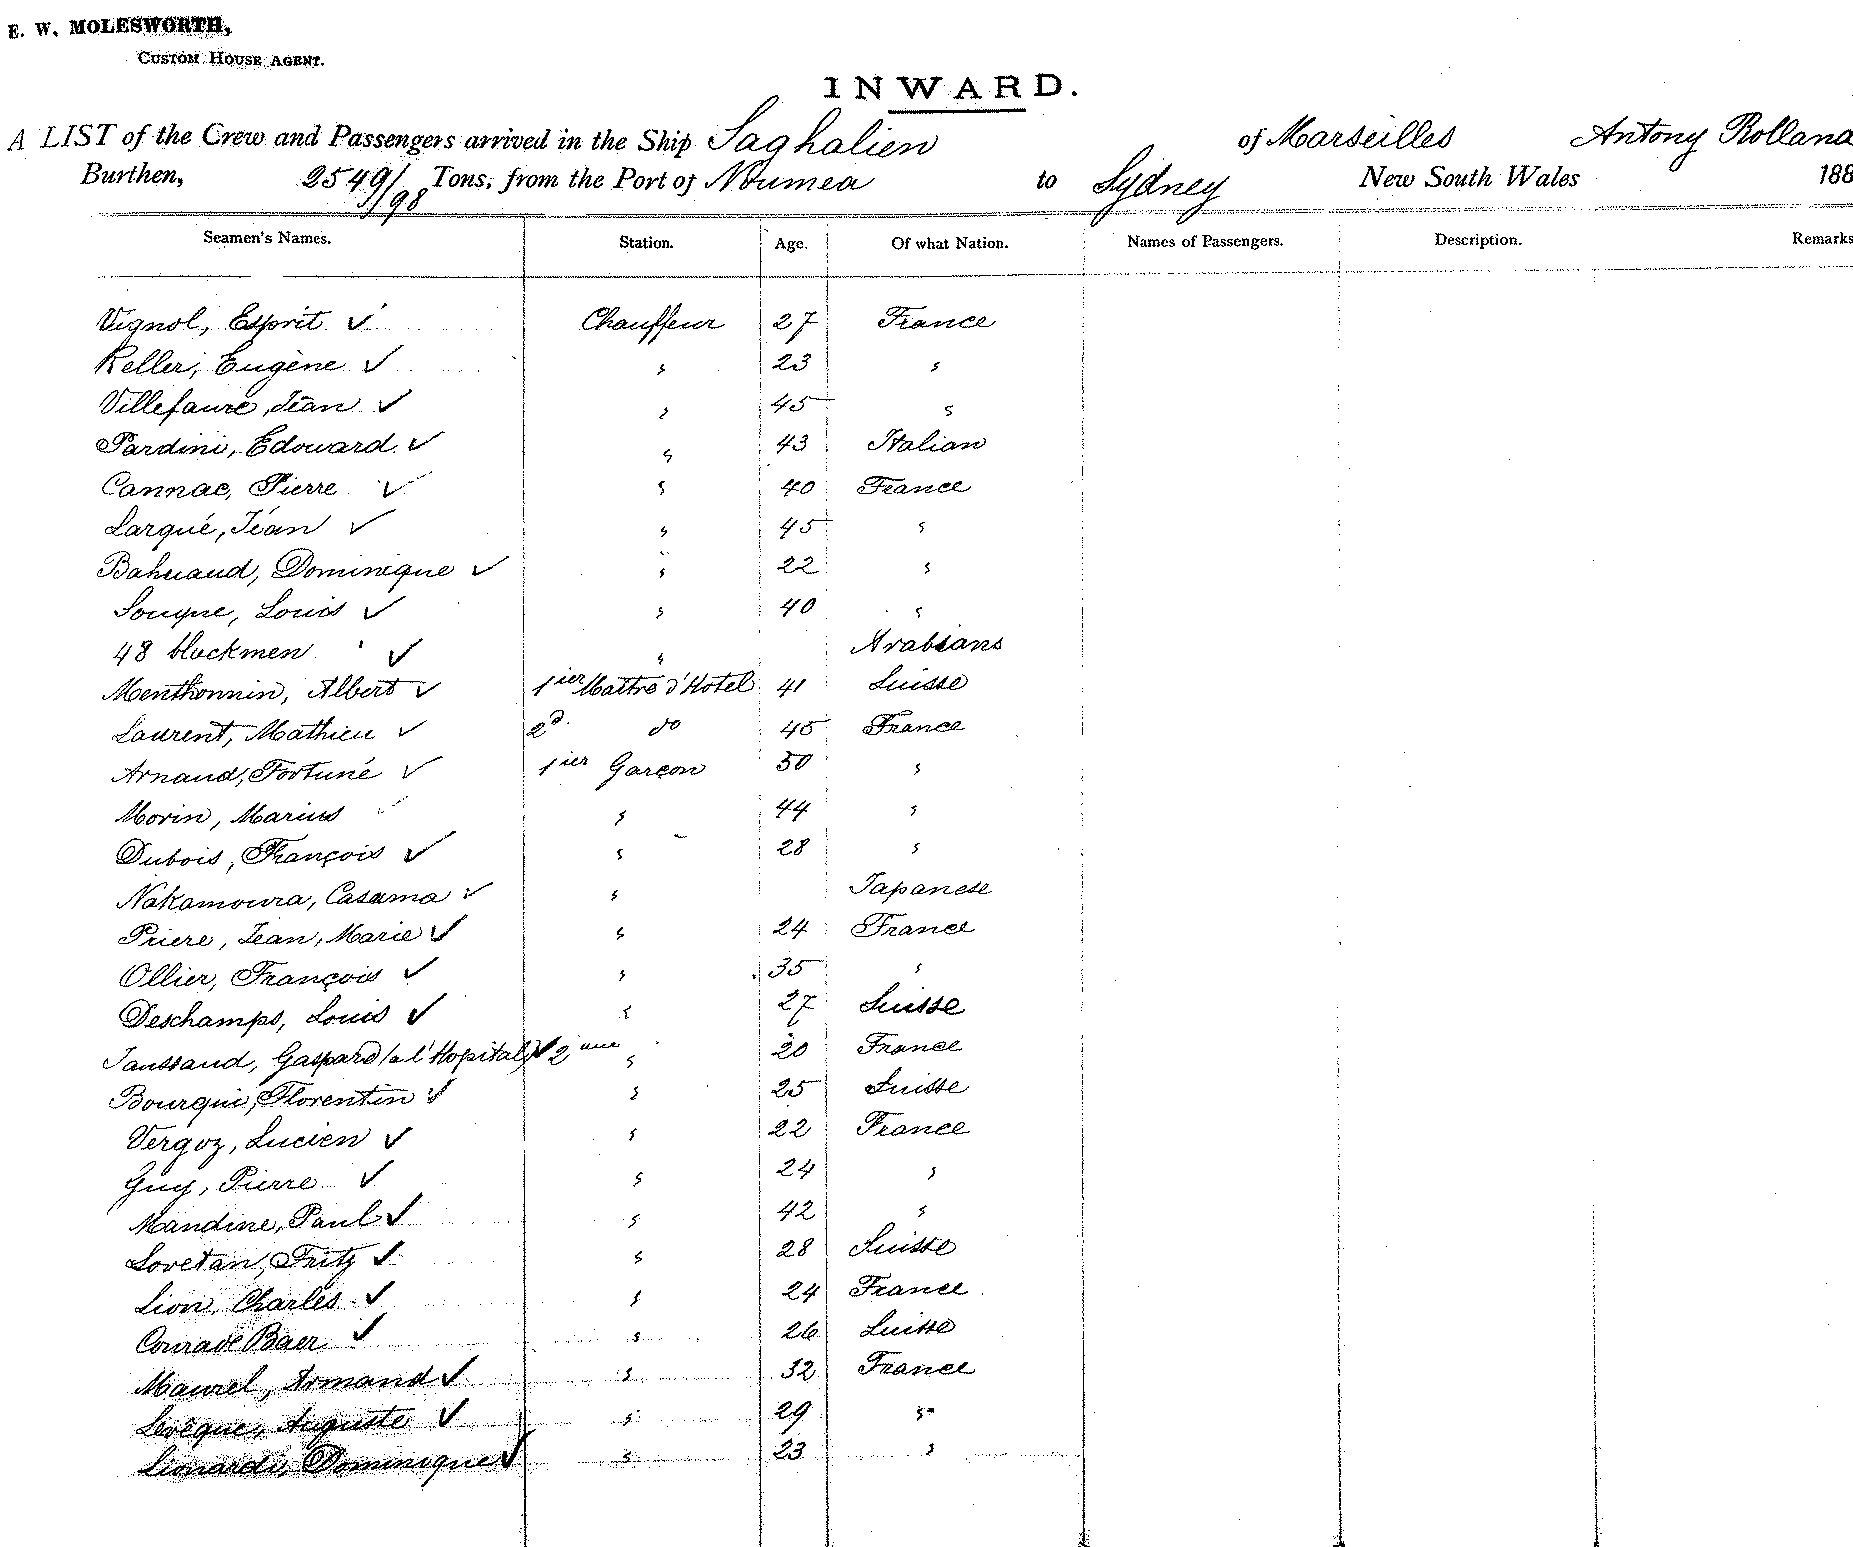 E. W. MOLESWORTH,
CUSTOM HOUSE AGENT.
INWARD.
A LIST of the Crew and Passengers arrived in the Ship Saghalien of Marseilles Antony Rolland
Burthen, 2549/98 Tons, from the Port of Noumea to Sydney New South Wales 188
Seamen's Names. Station. Age. Of what Nation. Names of Passengers. Description. Remarks
Vignol, Esprit ✓ Chauffeur 27 France
Keller, Eugène ✓ " 23 "
Villefaure, Jean ✓ " 45 "
Pardini, Edouard ✓ " 43 Italian
Cannac, Pierre ✓ " 40 France
Larqué, Jean ✓ " 45 "
Bahuaud, Dominique ✓ " 22 "
Souque, Louis ✓ " 40 "
48 blackmen ✓ " Arabians
Menthonnin, Albert ✓ 1ier Maître d'Hotel 41 Suisse
Laurent, Mathieu ✓ 2d do 45 France
Arnaud, Fortuné ✓ 1ier Garçon 50 "
Morin, Marius ✓ " 44 "
Dubois, François ✓ " 28 "
Nakamoura, Casama ✓ " Japanese
Priere, Jean, Marie ✓ " 24 France
Ollier, François ✓ " 35 "
Deschamps, Louis ✓ " 27 Suisse
Jaussaud, Gaspard (a l'Hopital) ✓ 2eme " 20 France
Bourquin, Florentin ✓ " 25 Suisse
Vergoz, Lucien ✓ " 22 France
Guy, Pierre ✓ " 24 "
Mandine, Paul ✓ " 42 "
Lovetan, Fritz ✓ " 28 Suisse
Lion, Charles ✓ " 24 France
Conrade Baer ✓ " 26 Suisse
Maurel, Armand ✓ " 32 France
Levêque, Auguste ✓ " 29 "
Lionardi, Dominique ✓ " 23 "